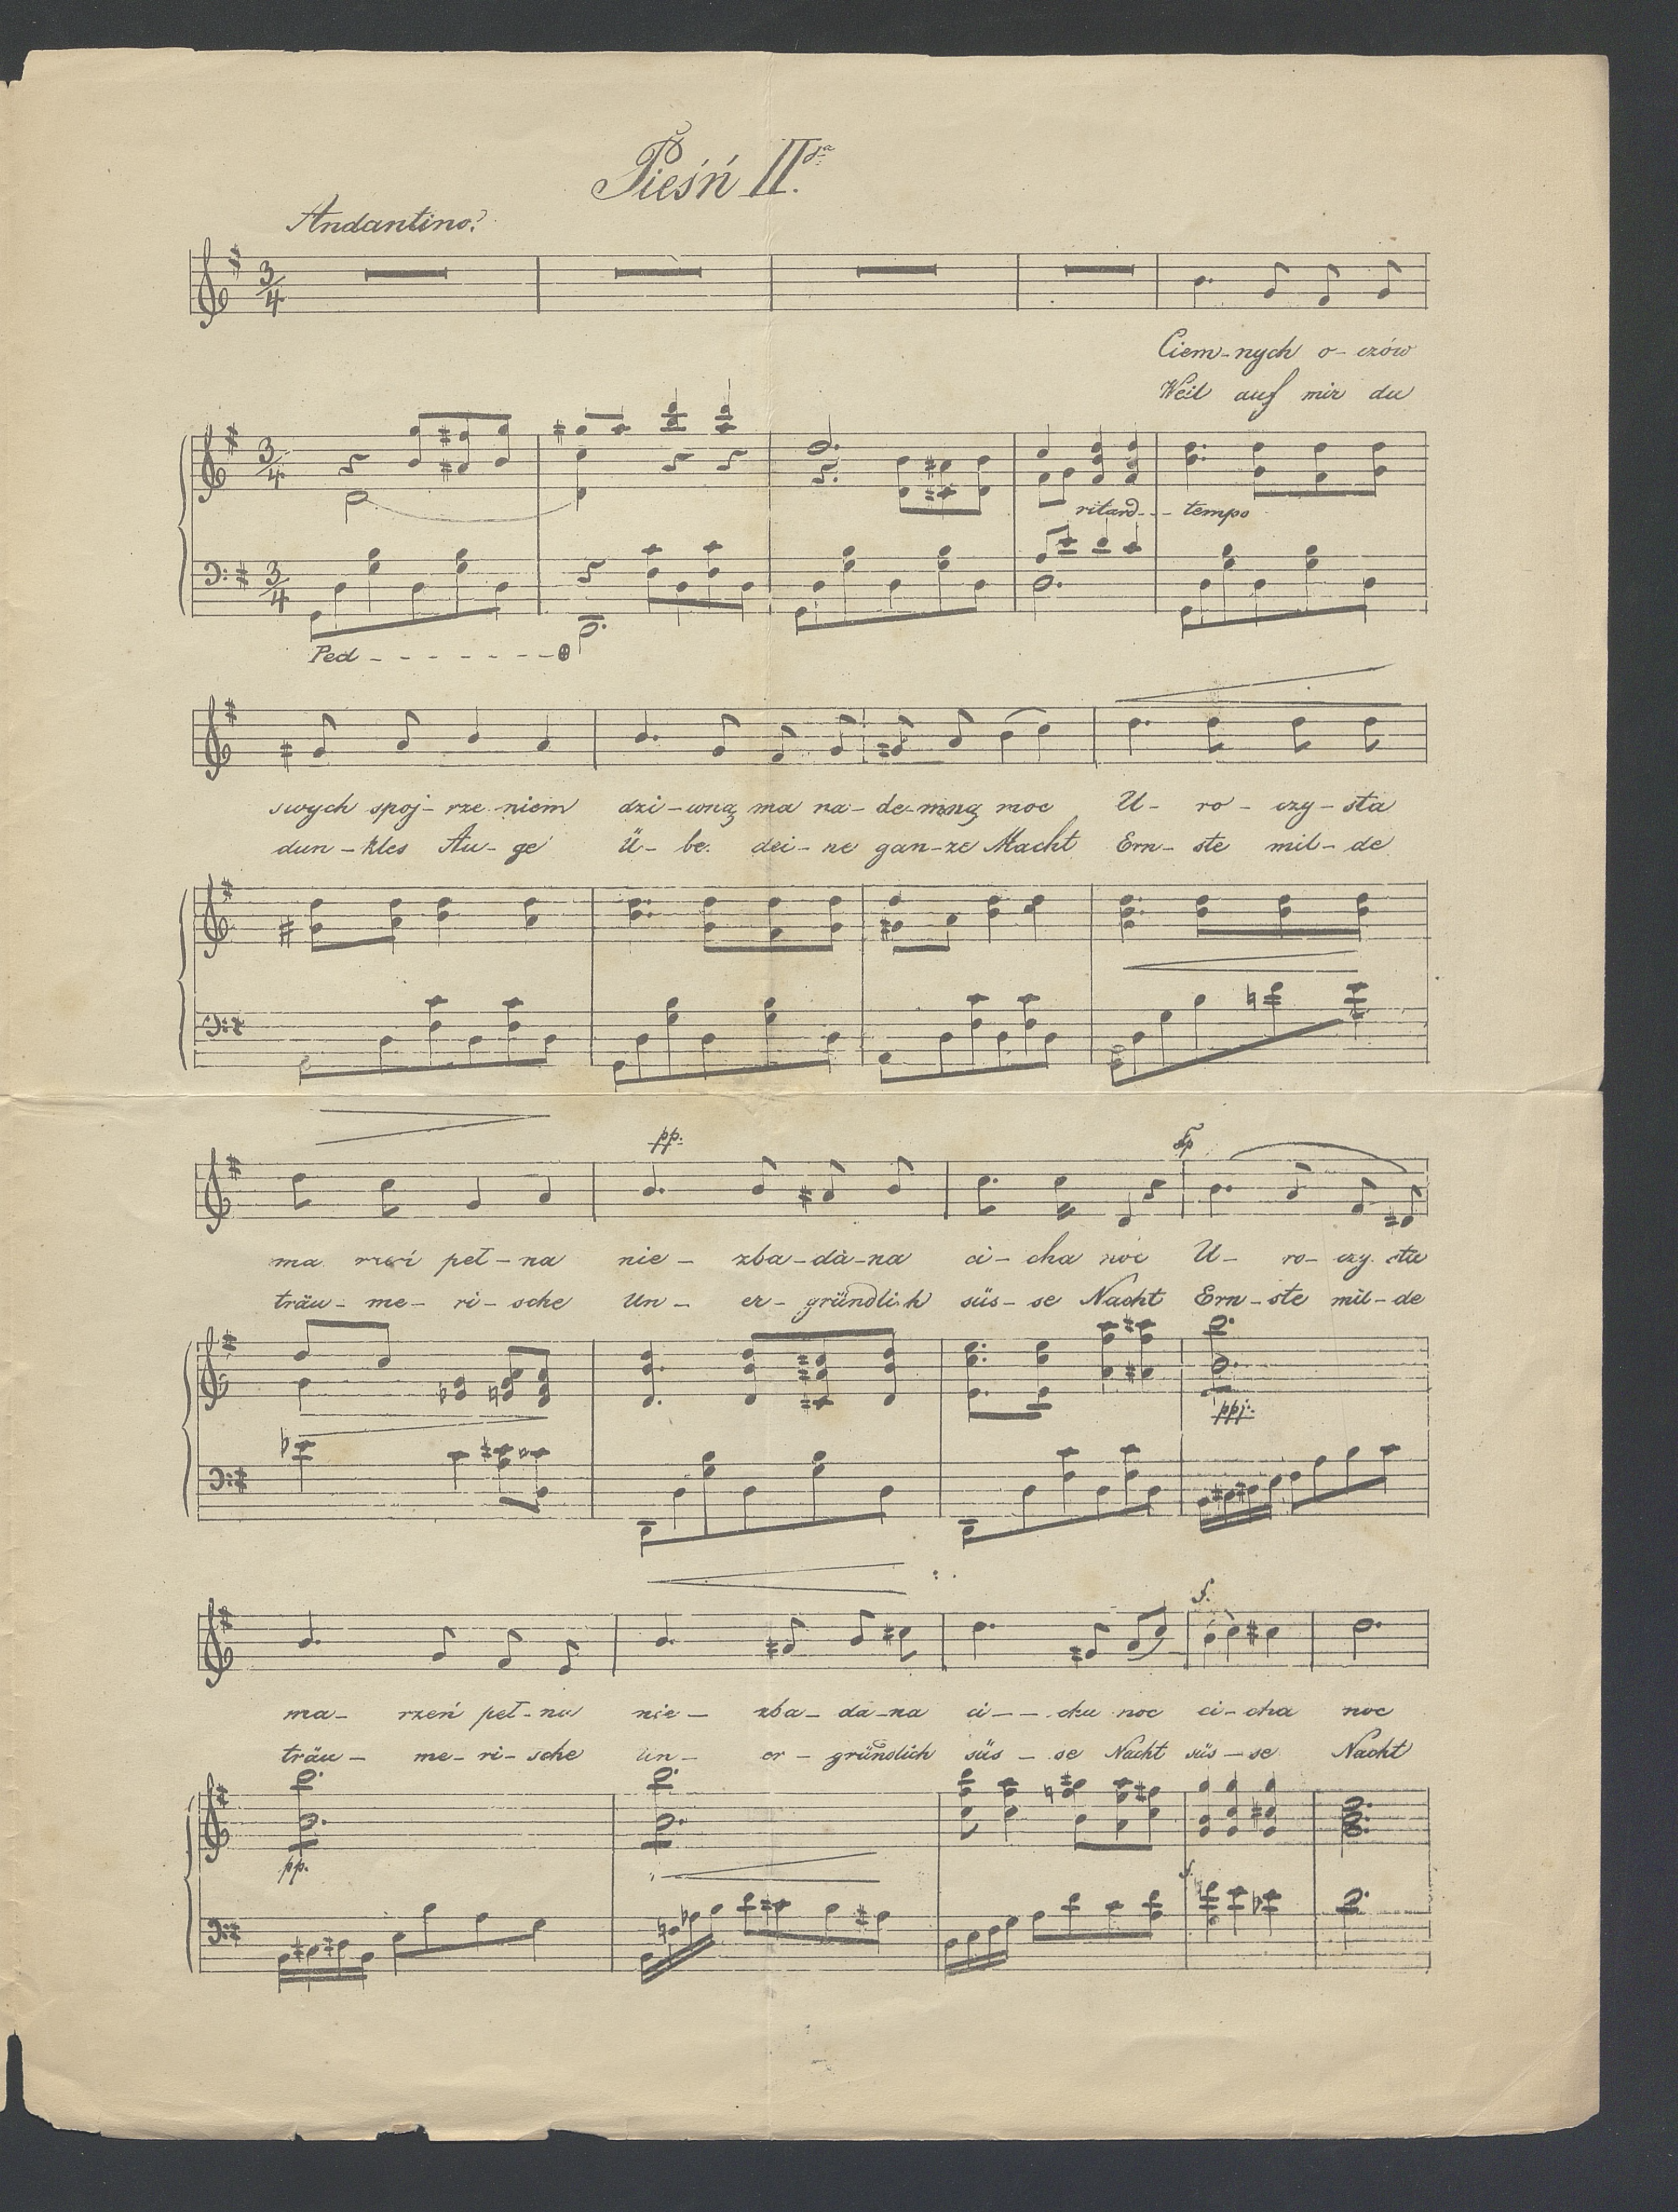 Pieśń II.ga
Andantino.
3/4
Ciem-nych o-czów
Weil auf mir du
3/4
ritard--- tempo
3/4
Ped - - - - - - -
swych spoj-rze niem dzi-wną ma na-de-mną moc U- ro- czy-sta
dun-kles Au-ge Ü-be. dei-ne gan-ze Macht Ern-ste mil-de
pp. fp
ma rzeń peł-na nie- zba-da-na ci-cha noc U- ro-czy sta
träu-me-ri-sche Un- er-gründlich süs-se Nacht Ern-ste mil-de
ppp.
f.
ma- rzeń peł-na nie- zba-da-na ci-- cha noc ci-cha noc
träu- me-ri-sche Un- er-gründlich süs-se Nacht süs-se Nacht
pp.
f.